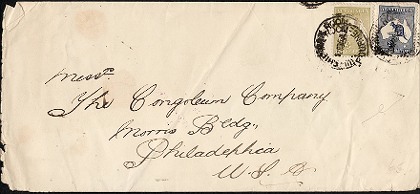 Messrs.
The Congoleum Company
Morris Bldg.,
Philadelphia
U. S. A.